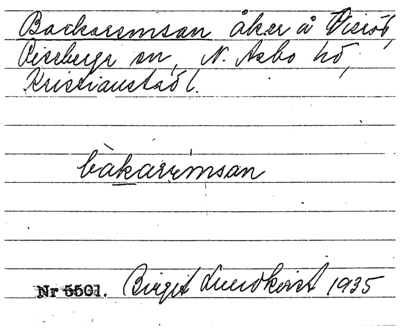 Backaremsan åker å Vissiö,
Riseberga sn, N. Åsbo hd,
Kristianstad l.
bàkarìmsan
Nr 5501. Birgit Lundkvist 1935